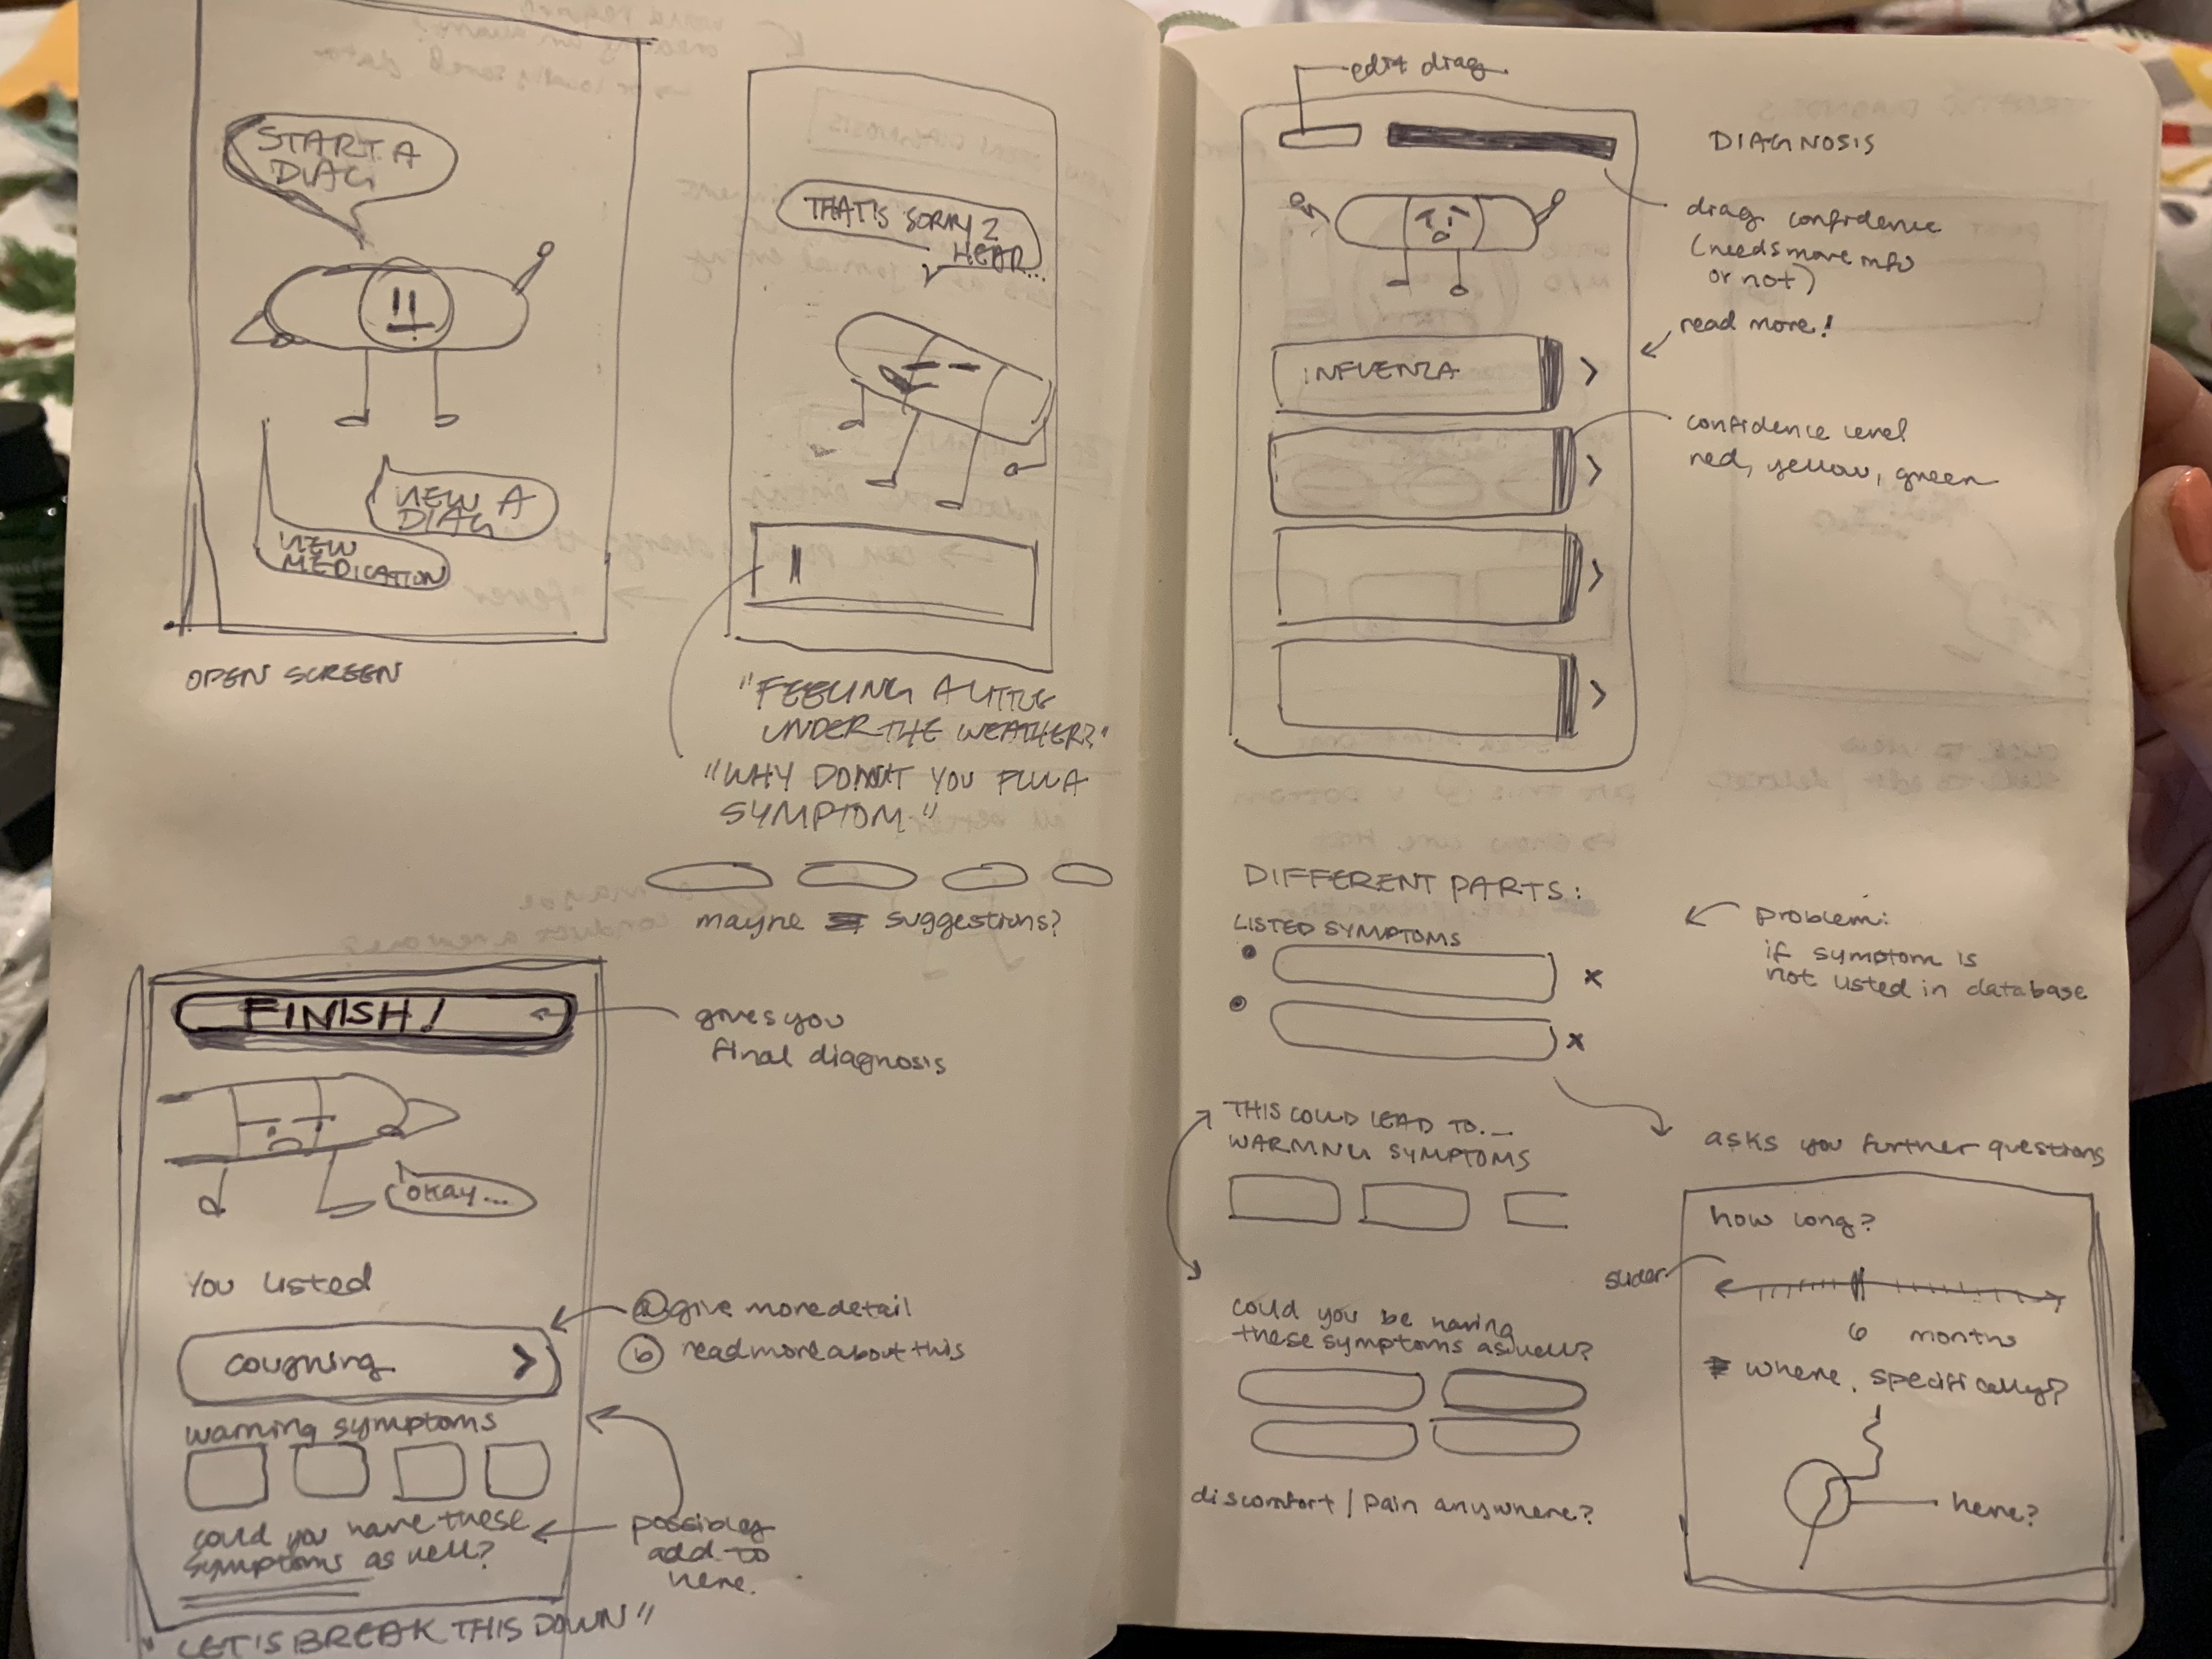 START A
DIAG
NEW A
DIAG
NEW
MEDICATION
OPEN SCREEN
THAT'S SORRY 2
HEAR...
"FEELING A LITTLE
UNDER THE WEATHER?"
"WHY DON'T YOU
SYMPTOM."
mayne suggestions?
FINISH!
gives you
final diagnosis
okay...
You listed
coughing >
a give more detail
b read more about this
warning symptoms
could you have these
symptoms as well?
possibley
add to
here.
"LET'S BREAK THIS DOWN"
edit diag.
DIAGNOSIS
diag confidence
(needs more info
or not)
read more!
INFLUENZA >
>
>
>
confidence level
red, yellow, green
DIFFERENT PARTS:
LISTED SYMPTOMS
x
x
problem:
if symptom is
not listed in database
THIS COULD LEAD TO...
WARNING SYMPTOMS
asks you further questions
could you be having
these symptoms as well?
discomfort / pain anywhere?
how long?
slider
6 months
where, specifically?
here?